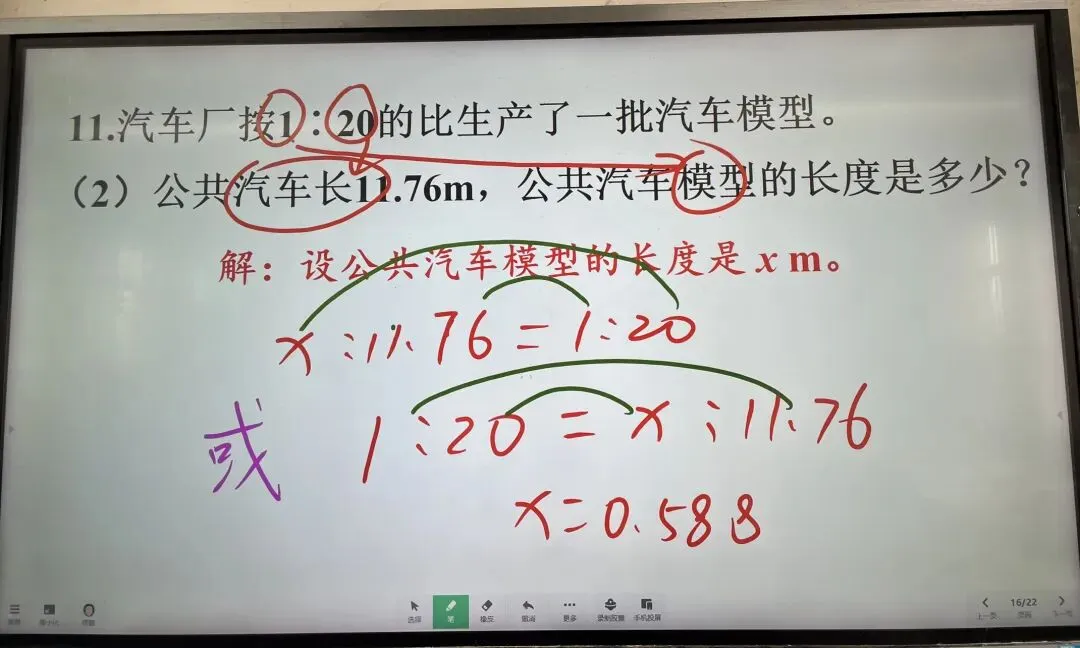 11.汽车厂按1∶20的比生产了一批汽车模型。
（2）公共汽车长11.76m，公共汽车模型的长度是多少？
解：设公共汽车模型的长度是 x m。
x:11.76=1:20
或 1:20=x:11.76
x=0.588
选择 笔 橡皮 撤消 更多 录制胶囊 手机投屏
16/22
上一页 下一页